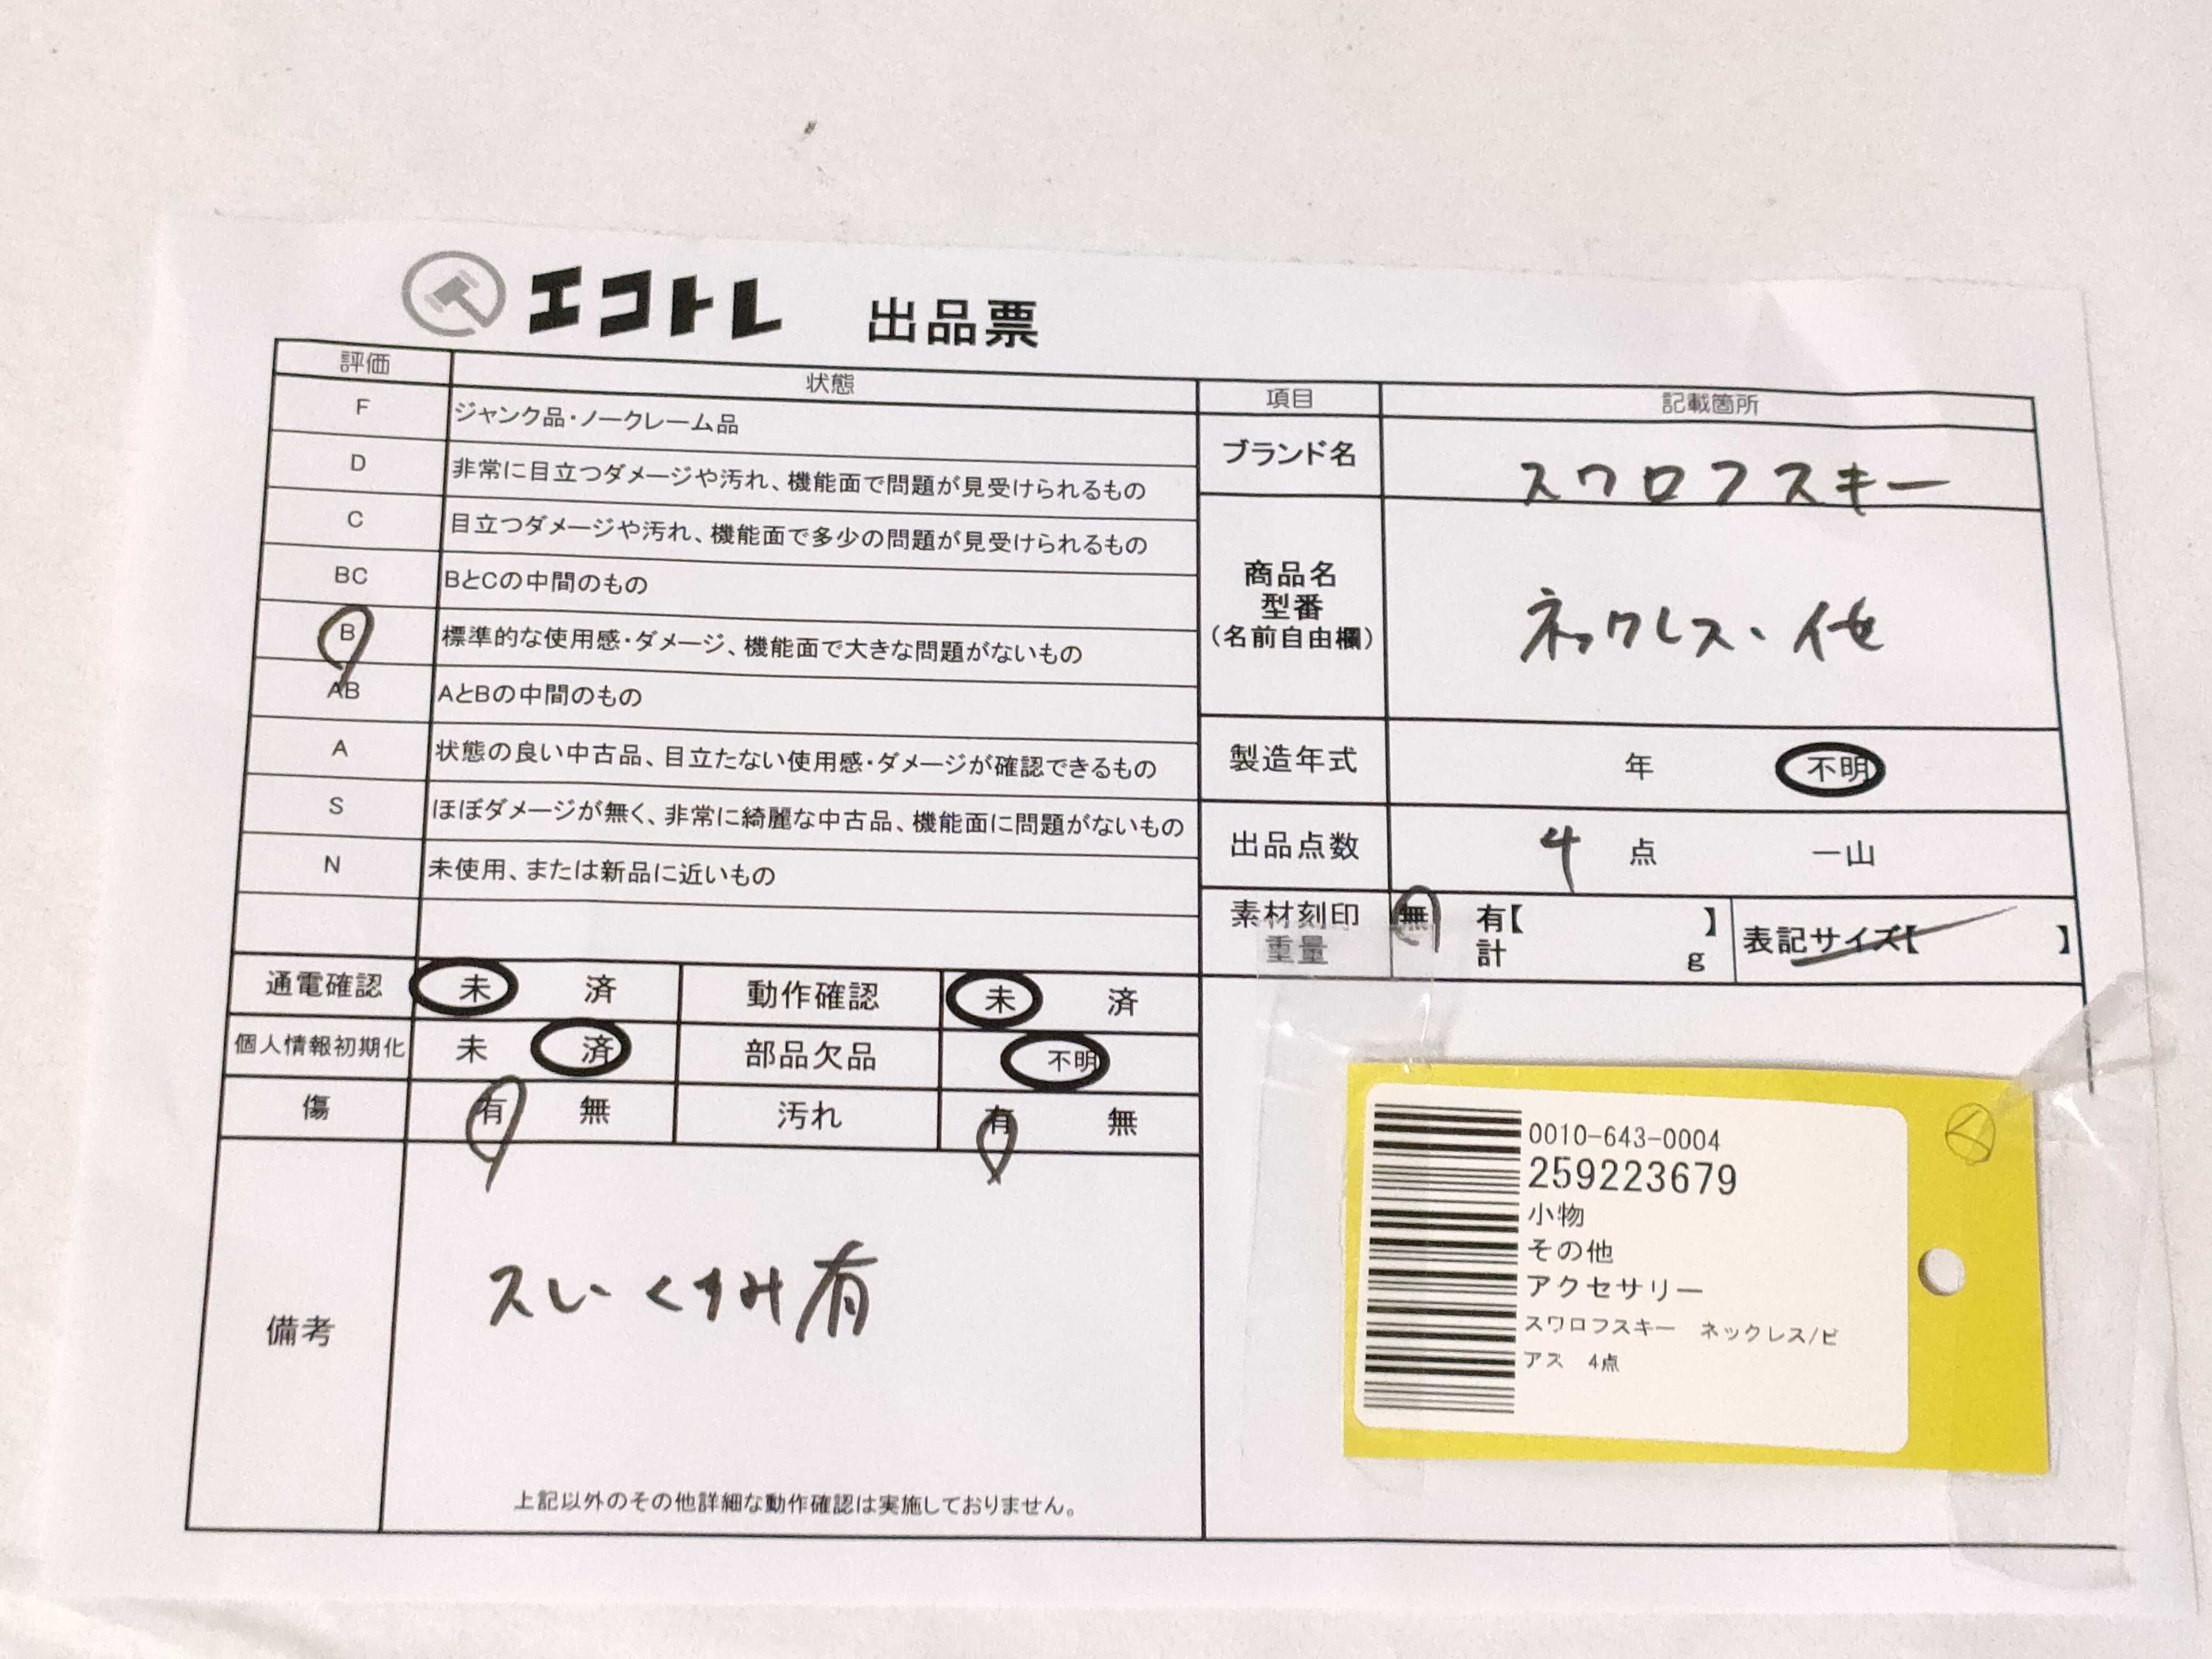 エコトレ 出品票
評価 状態
F ジャンク品・ノークレーム品
D 非常に目立つダメージや汚れ、機能面で問題が見受けられるもの
C 目立つダメージや汚れ、機能面で多少の問題が見受けられるもの
BC BとCの中間のもの
B 標準的な使用感・ダメージ、機能面で大きな問題がないもの
AB AとBの中間のもの
A 状態の良い中古品、目立たない使用感・ダメージが確認できるもの
S ほぼダメージが無く、非常に綺麗な中古品、機能面に問題がないもの
N 未使用、または新品に近いもの
通電確認 未 済 動作確認 未 済
個人情報初期化 未 済 部品欠品 不明
傷 有 無 汚れ 有 無
備考
スレ・くすみ有
上記以外のその他詳細な動作確認は実施しておりません。
項目 記載箇所
ブランド名 スワロフスキー
商品名
型番
(名前自由欄)
ネックレス・他
製造年式 年 不明
出品点数 4 点 一山
素材刻印 無 有【 】
重量 計 g
表記サイズ【 】
0010-643-0004
259223679
小物
その他
アクセサリー
スワロフスキー ネックレス/ピ
アス 4点